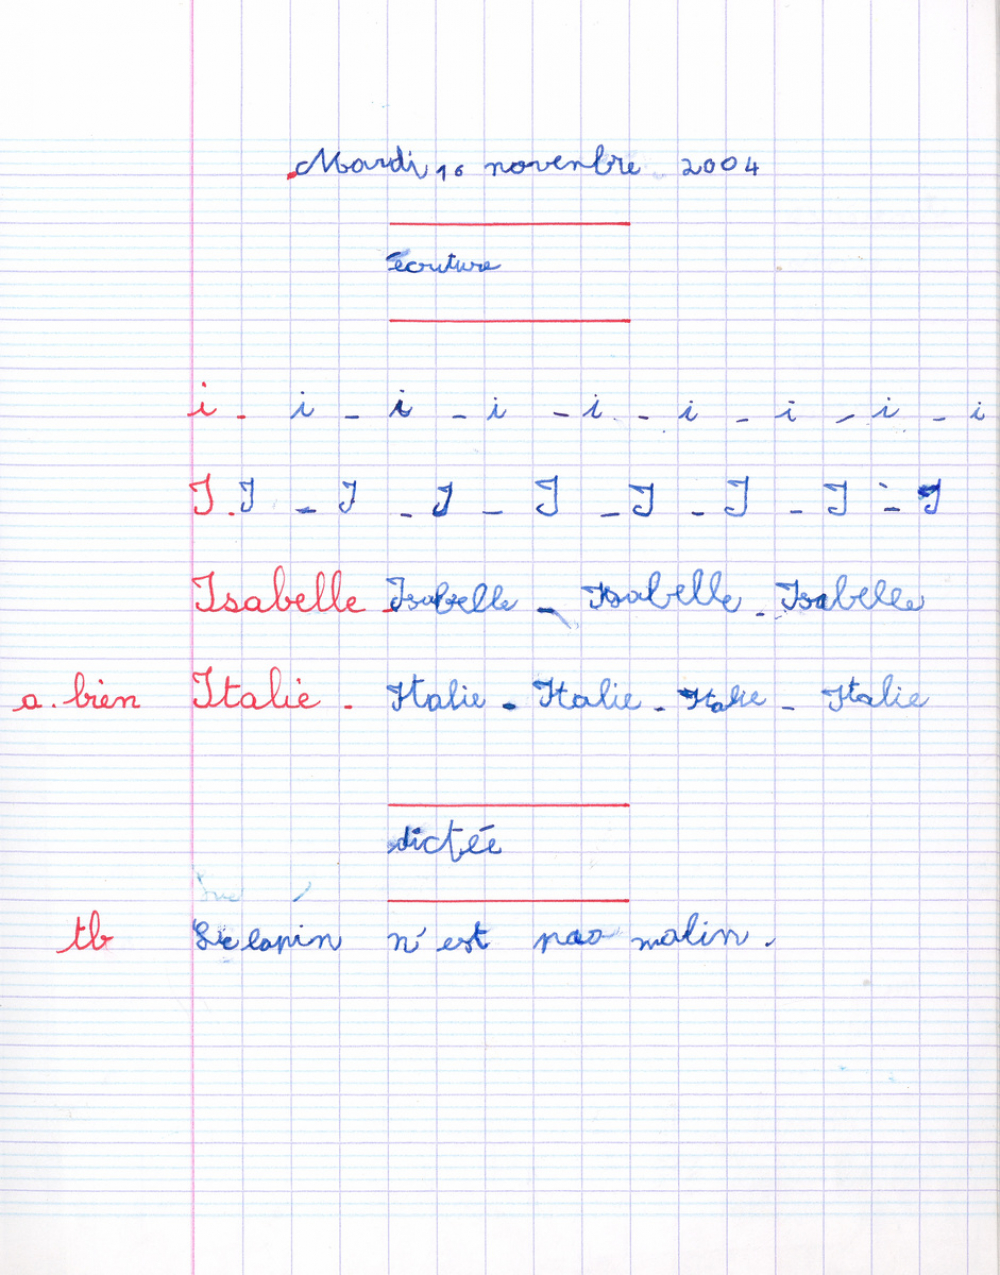 Mardi 16 novenbre 2004
écriture
i - i - i - i - i - i - i - i - i
I. I - I - I - I - I - I - I - I
Isabelle - Isabelle - Isabelle - Isabelle
a. bien Italie - Italie - Italie - Italie - Italie
dictée
tb Le lapin n'est pas malin.